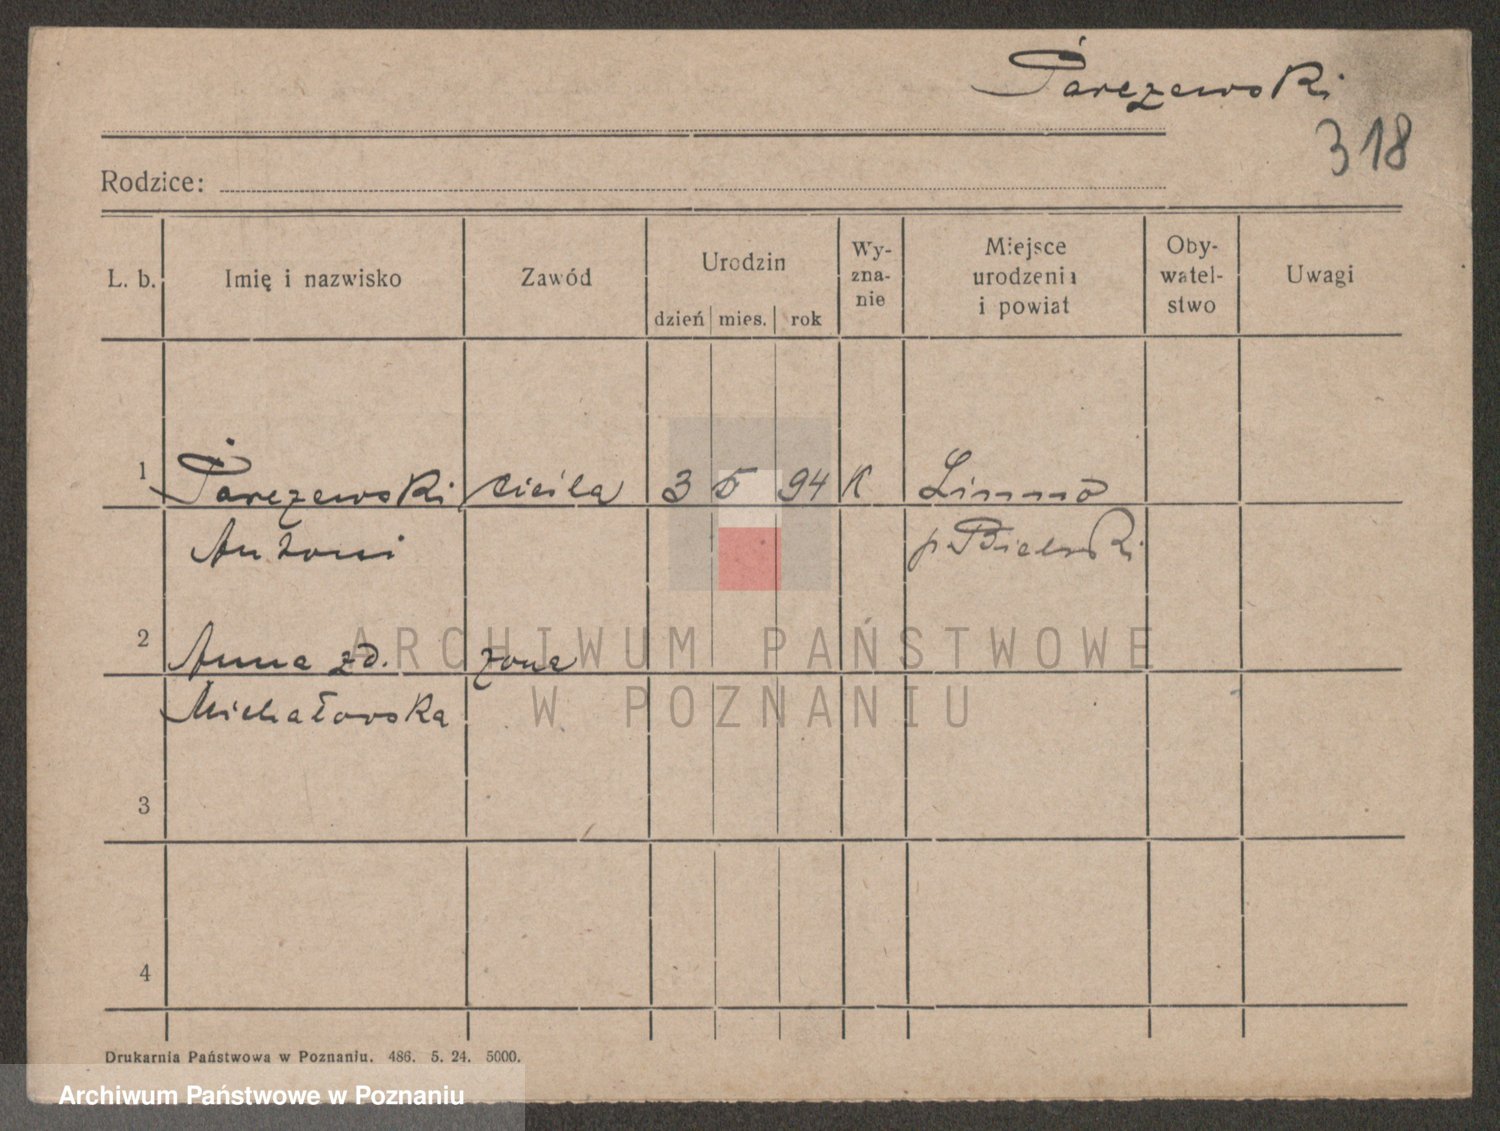 Parczewski
318
Rodzice:
L. b. Imię i nazwisko Zawód Urodzin dzień mies. rok Wy-zna-nie Miejsce urodzenia i powiat Oby-watel-stwo Uwagi
1 Parczewski cieśla 3 5 94 K
Antoni p. Bielski
2 Anna zd. żona
Michałowska
3
4
ARCHIWUM PAŃSTWOWE
W POZNANIU
Drukarnia Państwowa w Poznaniu. 486. 5. 24. 5000.
Archiwum Państwowe w Poznaniu